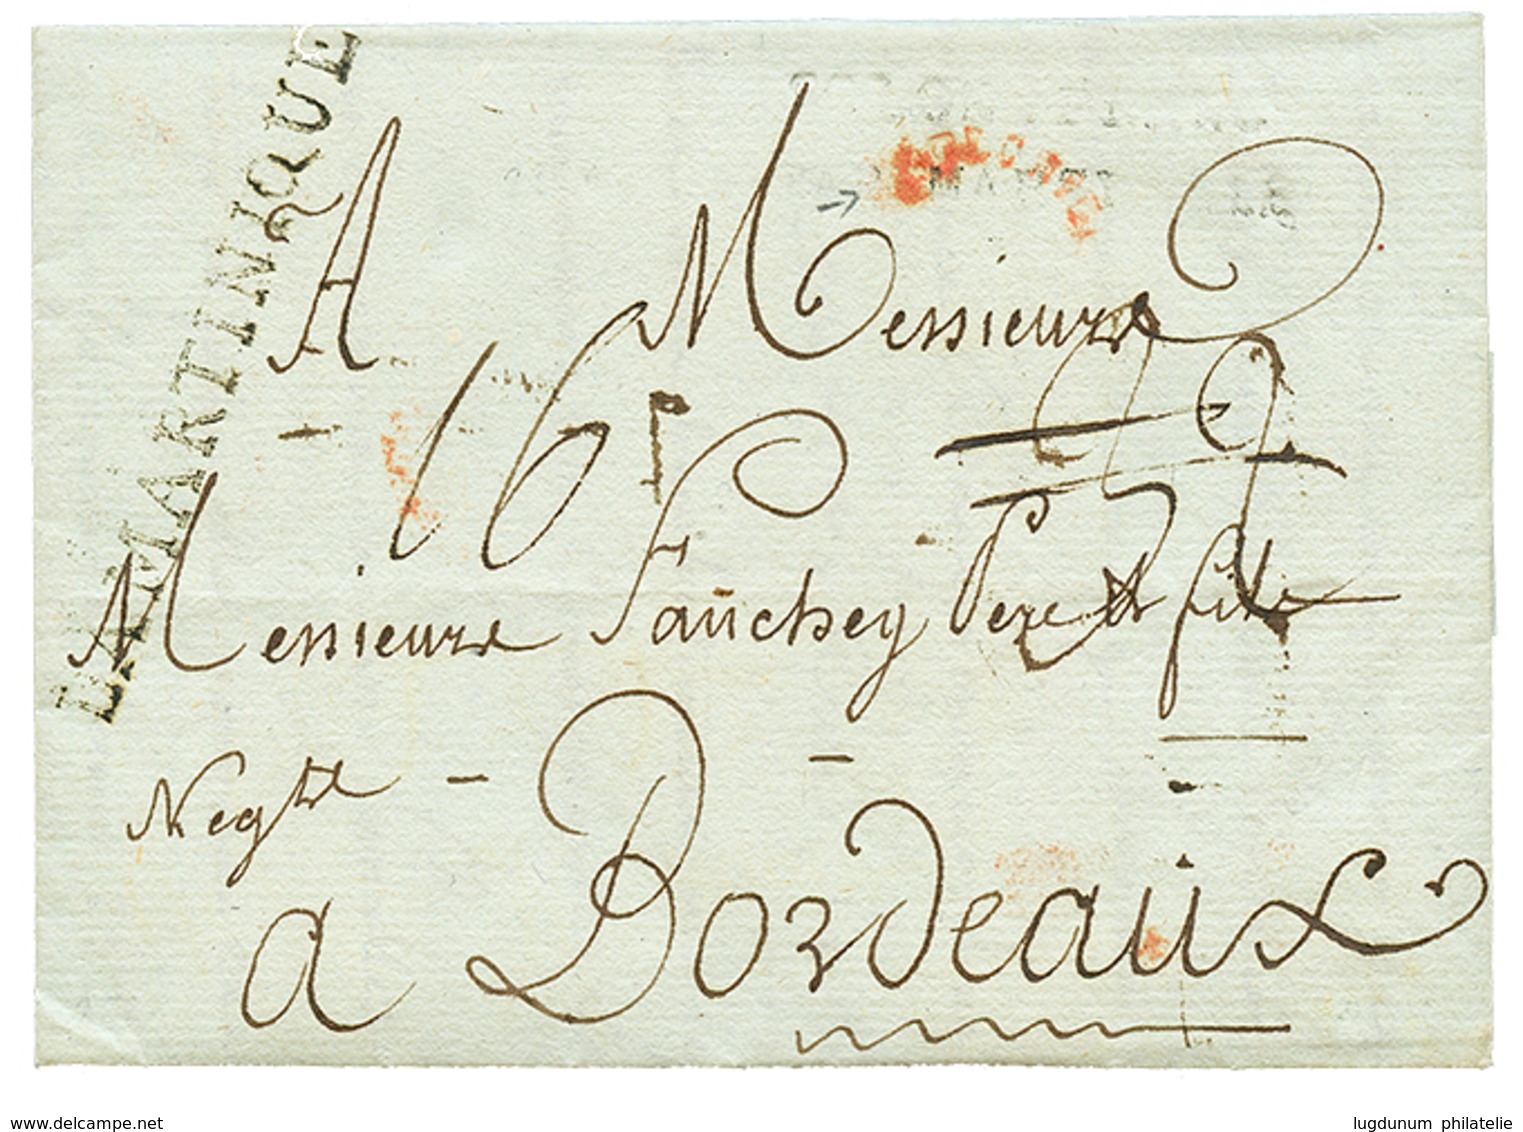 LA MARTINIQUE
A Messieurs
16
Messieurs Faüchey Pere et fils
Negts
a Bordeaüx
delcampe.net
lugdunum philatelie